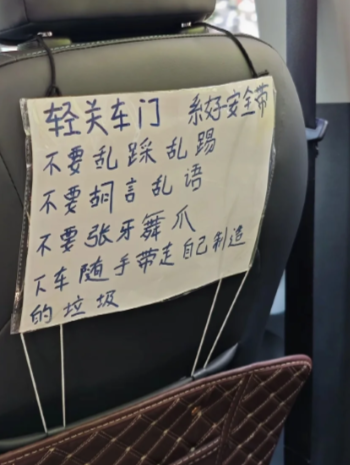 轻关车门 系好安全带
不要乱踩乱踢
不要胡言乱语
不要张牙舞爪
下车随手带走自己制造
的垃圾